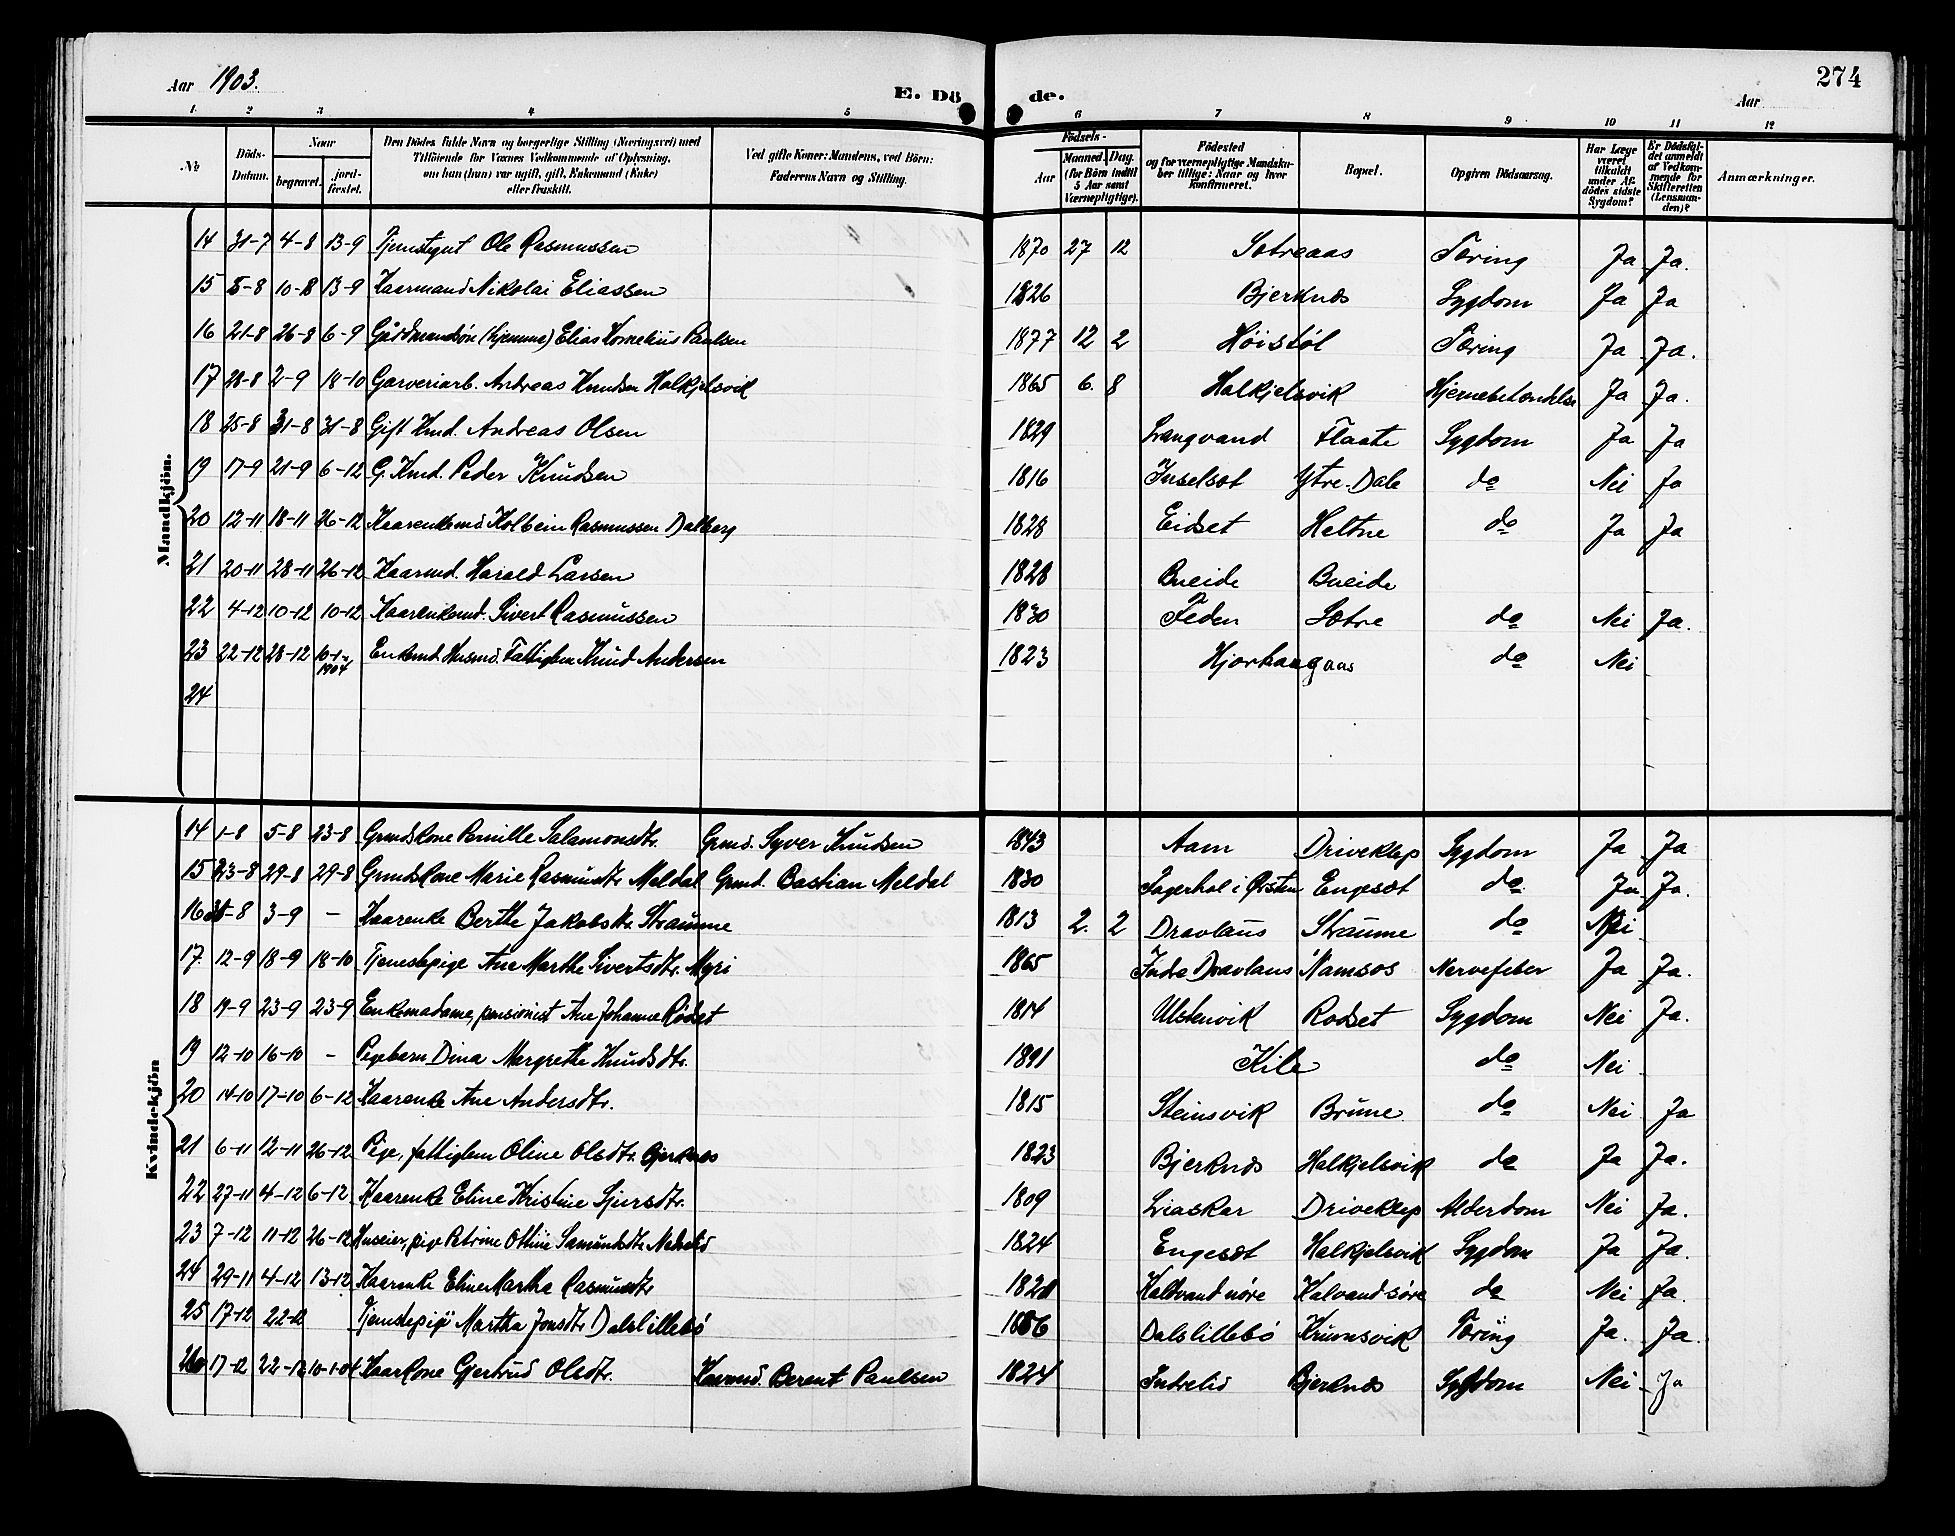 Aar 1903. E. Dö de. Aar 274
1 2 3 4 5 6 7 8 9 10 11 12
№ Döds-Datum. Naar begravet. jordfæstet. Den Dödes fulde Navn og borgerlige Stilling (Næringsvei) med Tilföiende for Voxnes Vedkommende af Oplysning, om han (hun) var ugift, gift, Enkemand (Enke) eller fraskilt. Ved gifte Koner: Mandens, ved Börn: Faderens Navn og Stilling. Födsels- Aar Maaned. Dag. (for Börn indtil 5 Aar samt Værnepligtige). Födested og for værnepligtige Mandskaber tillige: Naar og hvor konfirmeret. Bopæl. Opgiven Dödsaarsag. Har Læge været tilkaldt under Afdödes sidste Sygdom? Er Dödsfaldet anmeldt af Vedkommende for Skifteretten (Lensmanden)? Anmærkninger.
Mandkjön.
14 31-7 4-8 13-9 Tjenstegut Ole Rasmussen 1870 27 12 Sætreaas Tæring Ja Ja.
15 8-8 10-8 13-9 Kaarmand Nikolai Eliassen 1826 Bjerknæs Sygdom Ja Ja
16 21-8 26-8 6-9 Gårdmandsøn (hjemme) Elias Kornelius Paulsen 1877 12 2 Høistøl Tæring Ja Ja.
17 28-8 2-9 18-10 Garveriarb. Andreas Knudsen Halkjelsvik 1865 6. 8 Halkjelsvik Hjernebetændelse Ja Ja.
18 25-8 31-8 31-8 Gift Kmd. Andreas Olsen 1829 Langvand Flaate Sygdom Ja Ja
19 17-9 21-9 6-12 G. Kmd. Peder Knudsen 1816 Inselset Ytre-Dale do Nei Ja
20 12-11 18-11 26-12 Kaarenkemd Kolbein Rasmussen Dalberg 1828 Eidset Heltne do Ja Ja
21 20-11 28-11 26-12 Kaarmd. Harald Larsen 1828 Bueide Bueide
22 4-12 10-12 10-12 Kaarenkemd. Sivert Rasmussen 1830 Feden Sætre do Nei Ja.
23 22-12 28-12 10-1-1904 Enkemd. Husmd. Fattiglem Knud Andersen 1823 Hjorthaugaas do Nei
24
Kvindekjön
14 1-8 5-8 23-8 Grmdskone Pernille Salamonsdtr. Grmd. Syver Knudsen 1843 Aam Driveklep Sygdom Ja Ja
15 23-8 29-8 29-8 Grmdskone Marie Rasmusdtr Meldal Grmd. Bastian Meldal 1830 Fagerhol i Ørsten Engeset do Ja Ja.
16 31-8 3-9 - Kaarenke Berthe Jakobsdtr. Straume 1813 2. 2 Dravlaus Straume do Nei
17. 12-9 18-9 18-10 Tjenestepige Ane Marthe Sivertsdtr. Myri 1865 Indre Dravlaus Namsos Nervefeber Ja Ja.
18 19-9 23-9 23-9 Enkemadame, pensionist Ane Johanne Rødset 1814 Ulstenvik Rødset Sygdom Nei Ja.
19 12-10 16-10 - Pigebarn Dina Margrethe Knudsdtr. 1891 Kile do Nei
20 14-10 17-10 6-12 Kaarenke Ane Andersdtr. 1815 Steinsvik Brune do Nei Ja
21 6-11 12-11 26-12 Pige, fattiglem Oline Olsdtr. Bjerknes 1823 Bjerknæs Halkjelsvik do Ja Ja.
22 27-11 4-12 6-12 Kaarenke Eline Kristine Sjursdtr. 1809 Liaskar Driveklep Alderdom Nei Ja.
23 7-12 11-12 26-12 Huseier, pige Petrine Ottine Samundsdtr. Nedrelid 1824 Engeset Halkjelsvik Sygdom Ja Ja.
24 29-11 4-12 13-12 Kaarenke Eline Martha Rasmusdtr 1828 Kaldvand nøre Kalvand søre do Nei Ja.
25 17-12 22-12 Tjenstepige Martha Jonsdtr Dalslillebø Dalslillebø Krumsvik Tæring Ja. Ja.
26 17-12 22-12 10-1-04 Kaarkone Gjertrud Olsdtr. Kaarmd. Berent Paulsen 1824 Indrelid Bjerknæs Sygdom Nei Ja